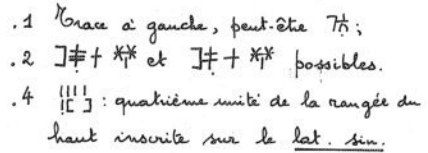 .1 Trace à gauche, peut-être ;
.2 et possibles.
.4 : quatrième unité de la rangée du
haut inscrite sur le lat. sin.